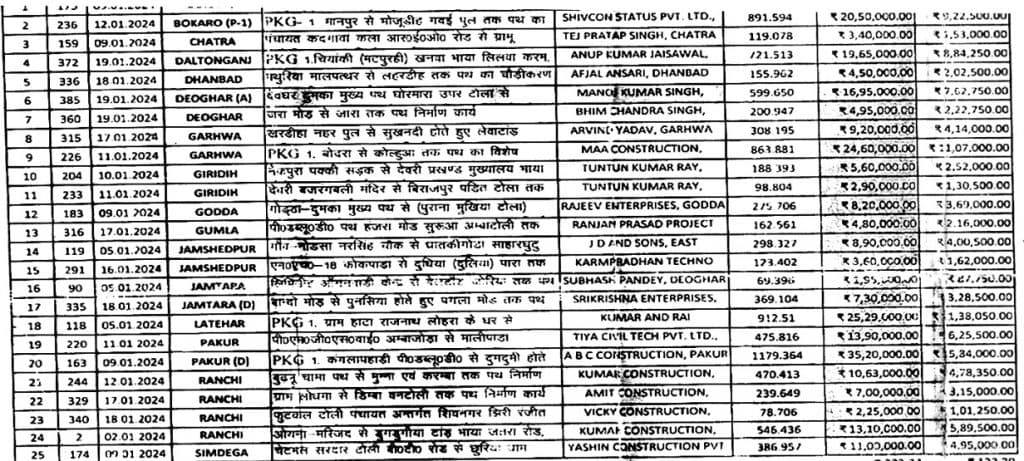 2 236 12.01.2024 BOKARO (P-1) PKG- 1 गानपुर से मोजूडीह गवई पुल तक पथ का SHIVCON STATUS PVT. LTD., 891.594 ₹ 20,50,000.00 ₹ 9,22,500.00
3 159 09.01.2024 CHATRA पंचायत कदगावा कला आर०ई०ओ० रोड से ग्रामू TEJ PRATAP SINGH, CHATRA 119.078 ₹ 3,40,000.00 1,53,000.00
4 372 19.01.2024 DALTONGANJ PKG 1.चियांकी (मटपुरही) खनवा भाया सिलवा करम, ANUP KUMAR JAISAWAL, 721.513 ₹ 19,65,000.00 8,84,250.00
5 336 18.01.2024 DHANBAD मालपत्थर से लहरडीह तक पथ का चौड़ीकरण AFJAL ANSARI, DHANBAD 155.962 ₹ 4,50,000.00 ₹ 2,02,500.00
6 385 19.01.2024 DEOGHAR (A) देवघर दुमका मुख्य पथ घोरमारा उपर टोला से MANOJ KUMAR SINGH, 599.650 ₹ 16,95,000.00 ₹ 7,62,750.00
7 360 19.01.2024 DEOGHAR जरा मोड़ से जारा तक पथ निर्माण कार्य BHIM CHANDRA SINGH, 200.947 ₹ 4,95,000.00 ₹ 2,22,750.00
8 315 17.01.2024 GARHWA खरडीहा नहर पुल से सुखनदी होते हुए लेवाटांड ARVIND YADAV, GARHWA 308 195 ₹ 9,20,000.00 ₹ 4,14,000.00
9 226 11.01.2024 GARHWA PKG 1. बोदरा से कोल्हुआ तक पथ का विशेष MAA CONSTRUCTION, 863.881 ₹ 24,60,000.00 11,07,000.00
10 204 10.01.2024 GIRIDIH पक्की सड़क से देवरी प्रखण्ड मुख्यालय भाया TUNTUN KUMAR RAY, 188 393 ₹ 5,60,000.00 ₹ 2,52,000.00
11 233 11.01.2024 GIRIDIH देवरी बजरंगबली मंदिर से बिराजपुर पंडित टोला तक TUNTUN KUMAR RAY, 98.804 ₹ 2,90,000.00 ₹ 1,30,500.00
12 183 09.01.2024 GODDA गोड्डा-दुमका मुख्य पथ से (पुराना मुखिया टोला) RAJEEV ENTERPRISES, GODDA 275.706 ₹ 8,20,000.00 3,69,000.00
13 316 17.01.2024 GUMLA पी०डब्लू०डी० पथ हजरा मोड सुरूआ अम्बाटोली तक RANJAN PRASAD PROJECT 162 561 ₹ 4,80,000.00 2,16,000.00
14 119 05.01.2024 JAMSHEDPUR नरसिंह चौक से घातकीगोढा साहारघुटु J D AND SONS, EAST 298.327 ₹ 8,90,000.00 ₹ 4,00,500.00
15 291 16.01.2024 JAMSHEDPUR एन०एच०-18 कोकपाडा से दुधिया (दुलिया) पारा तक KARMPRADHAN TECHNO 123.402 ₹ 3,60,000.00 1,62,000.00
16 90 05.01.2024 JAMTARA SUBHASH PANDEY, DEOGHAR 69.396 ₹ 1,95,000.00 ₹ 87,750.00
17 335 18.01.2024 JAMTARA (D) मोड़ से पुनसिया होते हुए पगला मोड़ तक पथ SRIKRISHNA ENTERPRISES, 369.104 ₹ 7,30,000.00 3,28,500.00
18 118 05.01.2024 LATEHAR PKG 1. ग्राम हाटा राजनाथ लोहरा के घर से KUMAR AND RAI 912.51 ₹ 25,29,000.00 11,38,050.00
19 220 11 01 2024 PAKUR पी०एम०जी०एस०वाई० अम्बाजोड़ा से मालीपाडा TIYA CIVIL TECH PVT. LTD., 475.816 ₹ 13,90,000.00 6,25,500.00
20 163 09.01.2024 PAKUR (D) PKG 1. कंगलापहाडी पी०डब्लू०डी० से दुगदुमी होते A B C CONSTRUCTION, PAKUR 1179.364 ₹ 35,20,000.00 15,84,000.00
21 244 12 01.2024 RANCHI बुढनू चामा पथ से मुन्ना एवं करम्बा तक पथ निर्माण KUMAR CONSTRUCTION, 470.413 ₹ 10,63,000.00 4,78,350.00
22 329 17.01.2024 RANCHI ग्राम लोधमा से डिम्बा बनटोली तक पथ निर्माण कार्य AMIT CONSTRUCTION, 239.649 ₹ 7,00,000.00 3,15,000.00
23 340 18.01.2024 RANCHI फुटकल टोली पंचायत अन्तर्गत शिवनगर झिरी रंजीत VICKY CONSTRUCTION, 78.706 ₹ 2,25,000.00 1,01,250.00
24 2 02.01.2024 RANCHI मस्जिद से डुगडुगीया टांड़ भाया जतरा रोड, KUMAR CONSTRUCTION, 546.436 ₹ 13,10,000.00 5,89,500.00
25 174 09 01 2024 SIMDEGA सरदार टोली रोड से ग्राम YASHIN CONSTRUCTION PVT 386.957 ₹ 11,00,000.00 4,95,000.00